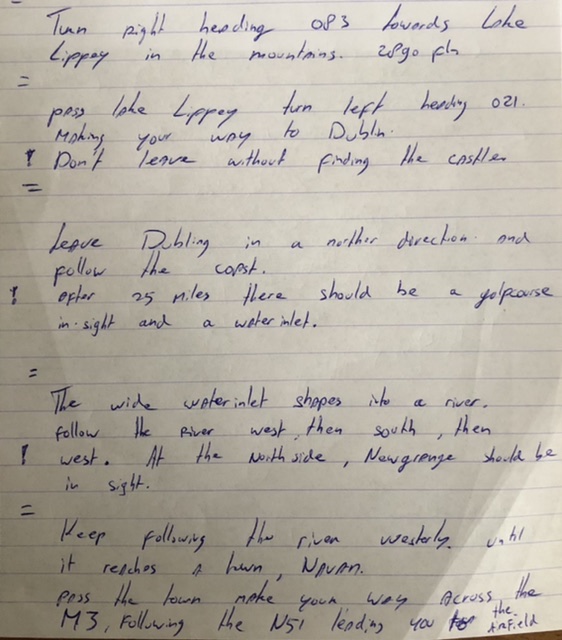 Turn right heading 083 towards Lake
Lippey in the mountains. 2890 ft
=
pass lake Lippey turn left heading 021.
Making your way to Dubln.
! Don't leave without finding the castle.
=
Leave Dubling in a norther direction and
follow the coast.
! after 25 miles there should be a golfcourse
in sight and a waterinlet.
=
The wide waterinlet shapes into a river.
follow the River west, then south, then
! west. At the North side, Newgrenge should be
in sight.
=
Keep following the river westerly until
it reaches a town, NAVAN.
pass the town make your way across the
M3, Following the N51 leading you to the Airfield